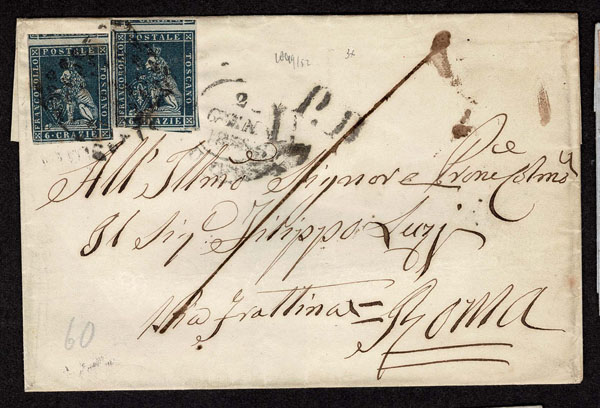 FRANCOBOLLO POSTALE TOSCANO
6 CRAZIE
FRANCOBOLLO POSTALE TOSCANO
6 CRAZIE
2
GEN
P. D
All' Illmo Signore Prone Colmo
Il Sig Filippo Luzj
Via Frattina = Roma
60